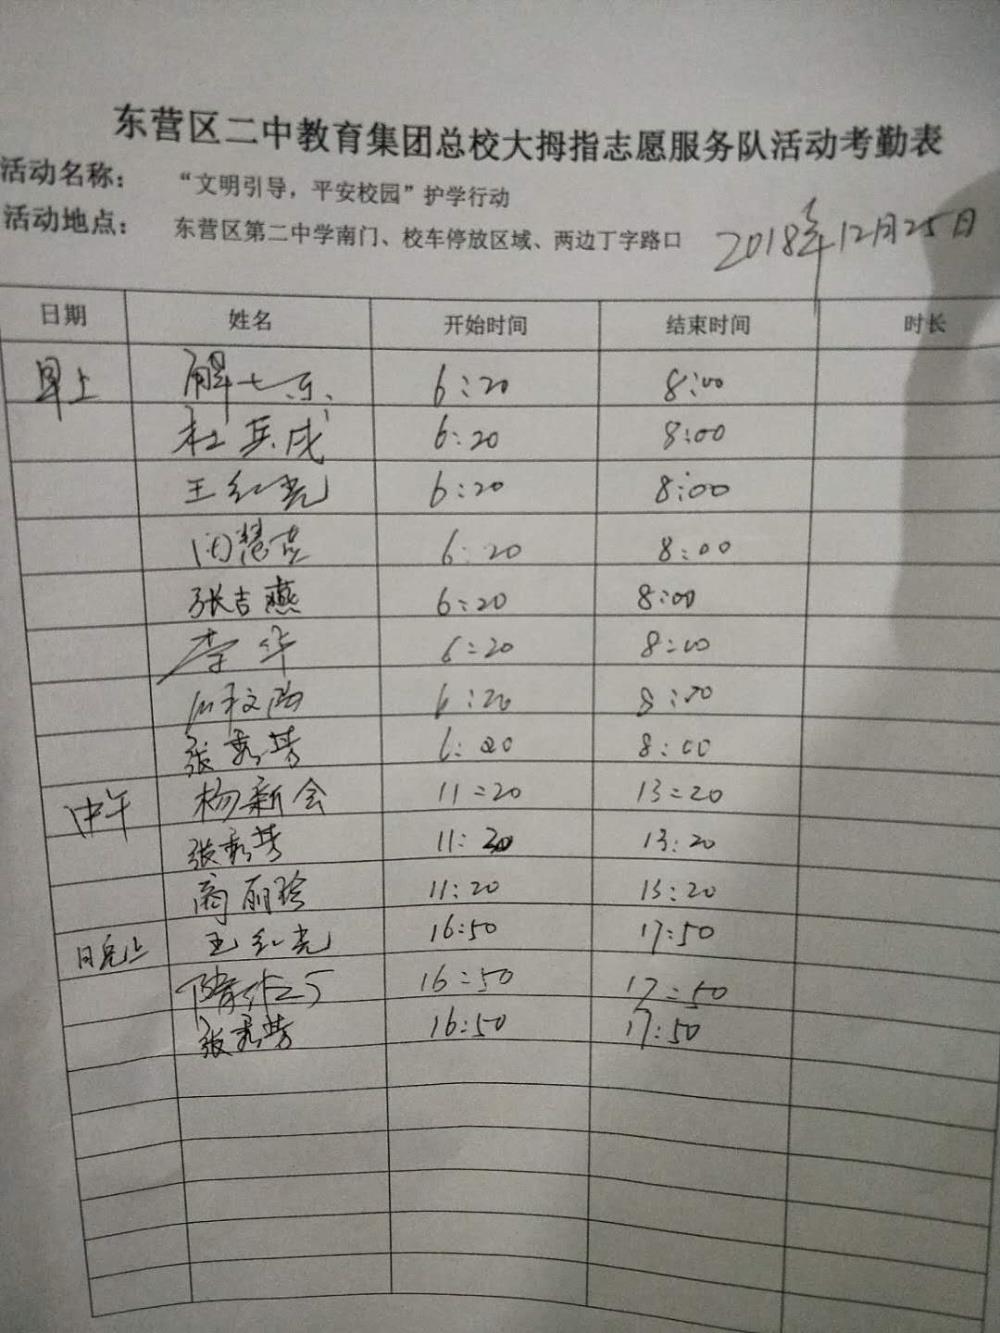 东营区二中教育集团总校大拇指志愿服务队活动考勤表
活动名称： “文明引导，平安校园”护学行动
活动地点： 东营区第二中学南门、校车停放区域、两边丁字路口 2018年12月25日
日期 姓名 开始时间 结束时间 时长
早上 解七东 6:20 8:00
杜兵成 6:20 8:00
王红亮 6:20 8:00
闫慧芸 6:20 8:00
张吉燕 6:20 8:00
李华 6:20 8:00
6:20 8:00
张秀芳 6:20 8:00
中午 杨新会 11:20 13:20
张秀芳 11:20 13:20
商丽珍 11:20 13:20
晚上 王红亮 16:50 17:50
16:50 17:50
张秀芳 16:50 17:50